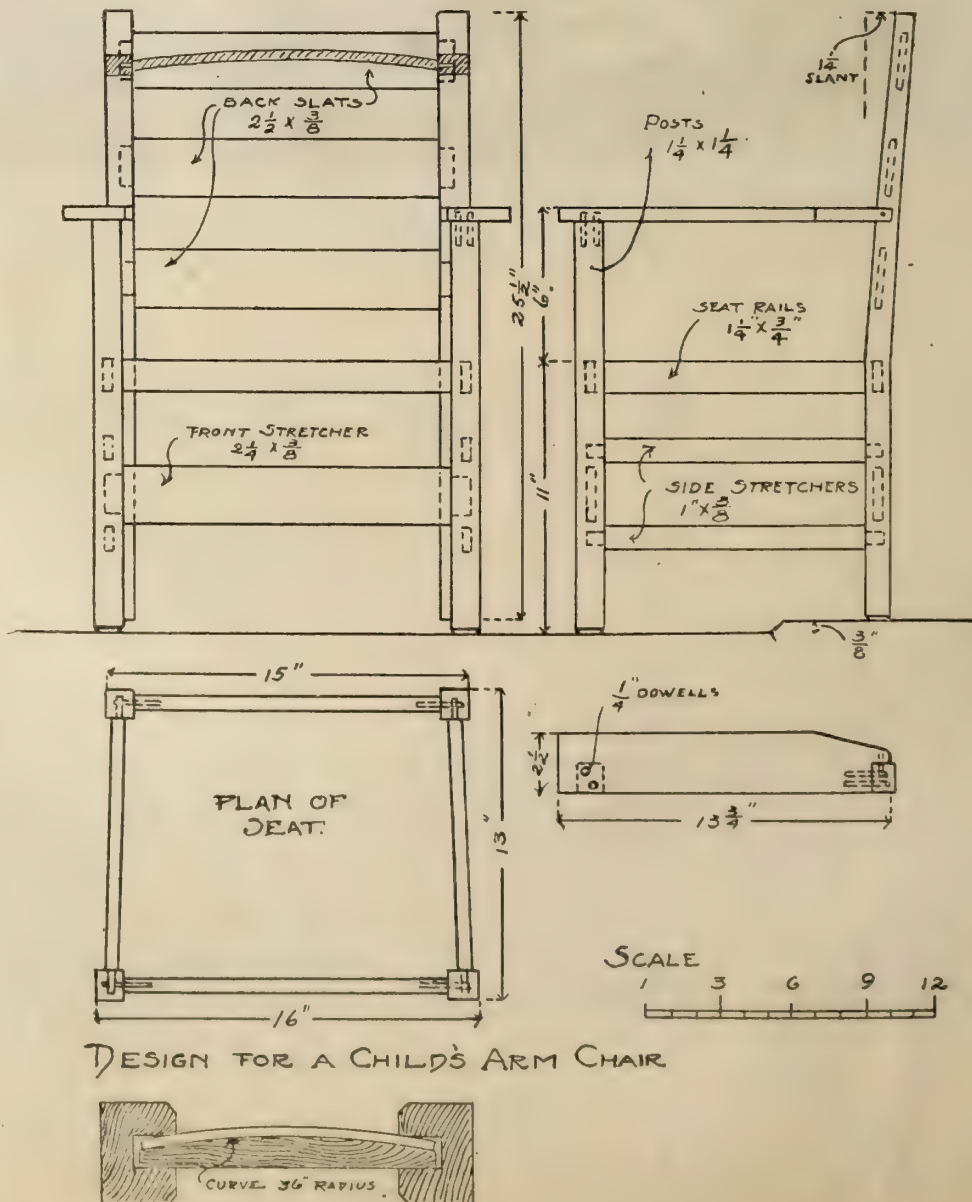 1 1/4"
SLANT
BACK SLATS
2 1/2 x 3/8
POSTS
1 1/4 x 1 1/4
25 1/2"
6"
SEAT RAILS
1 1/4" x 3/4"
FRONT STRETCHER
2 1/4 x 3/8
11"
SIDE STRETCHERS
1" x 3/8
3/8"
15"
1/4" DOWELLS
2 1/2
PLAN OF
SEAT.
13"
13 3/4"
16"
SCALE
1 3 6 9 12
DESIGN FOR A CHILD'S ARM CHAIR
CURVE 36" RADIUS